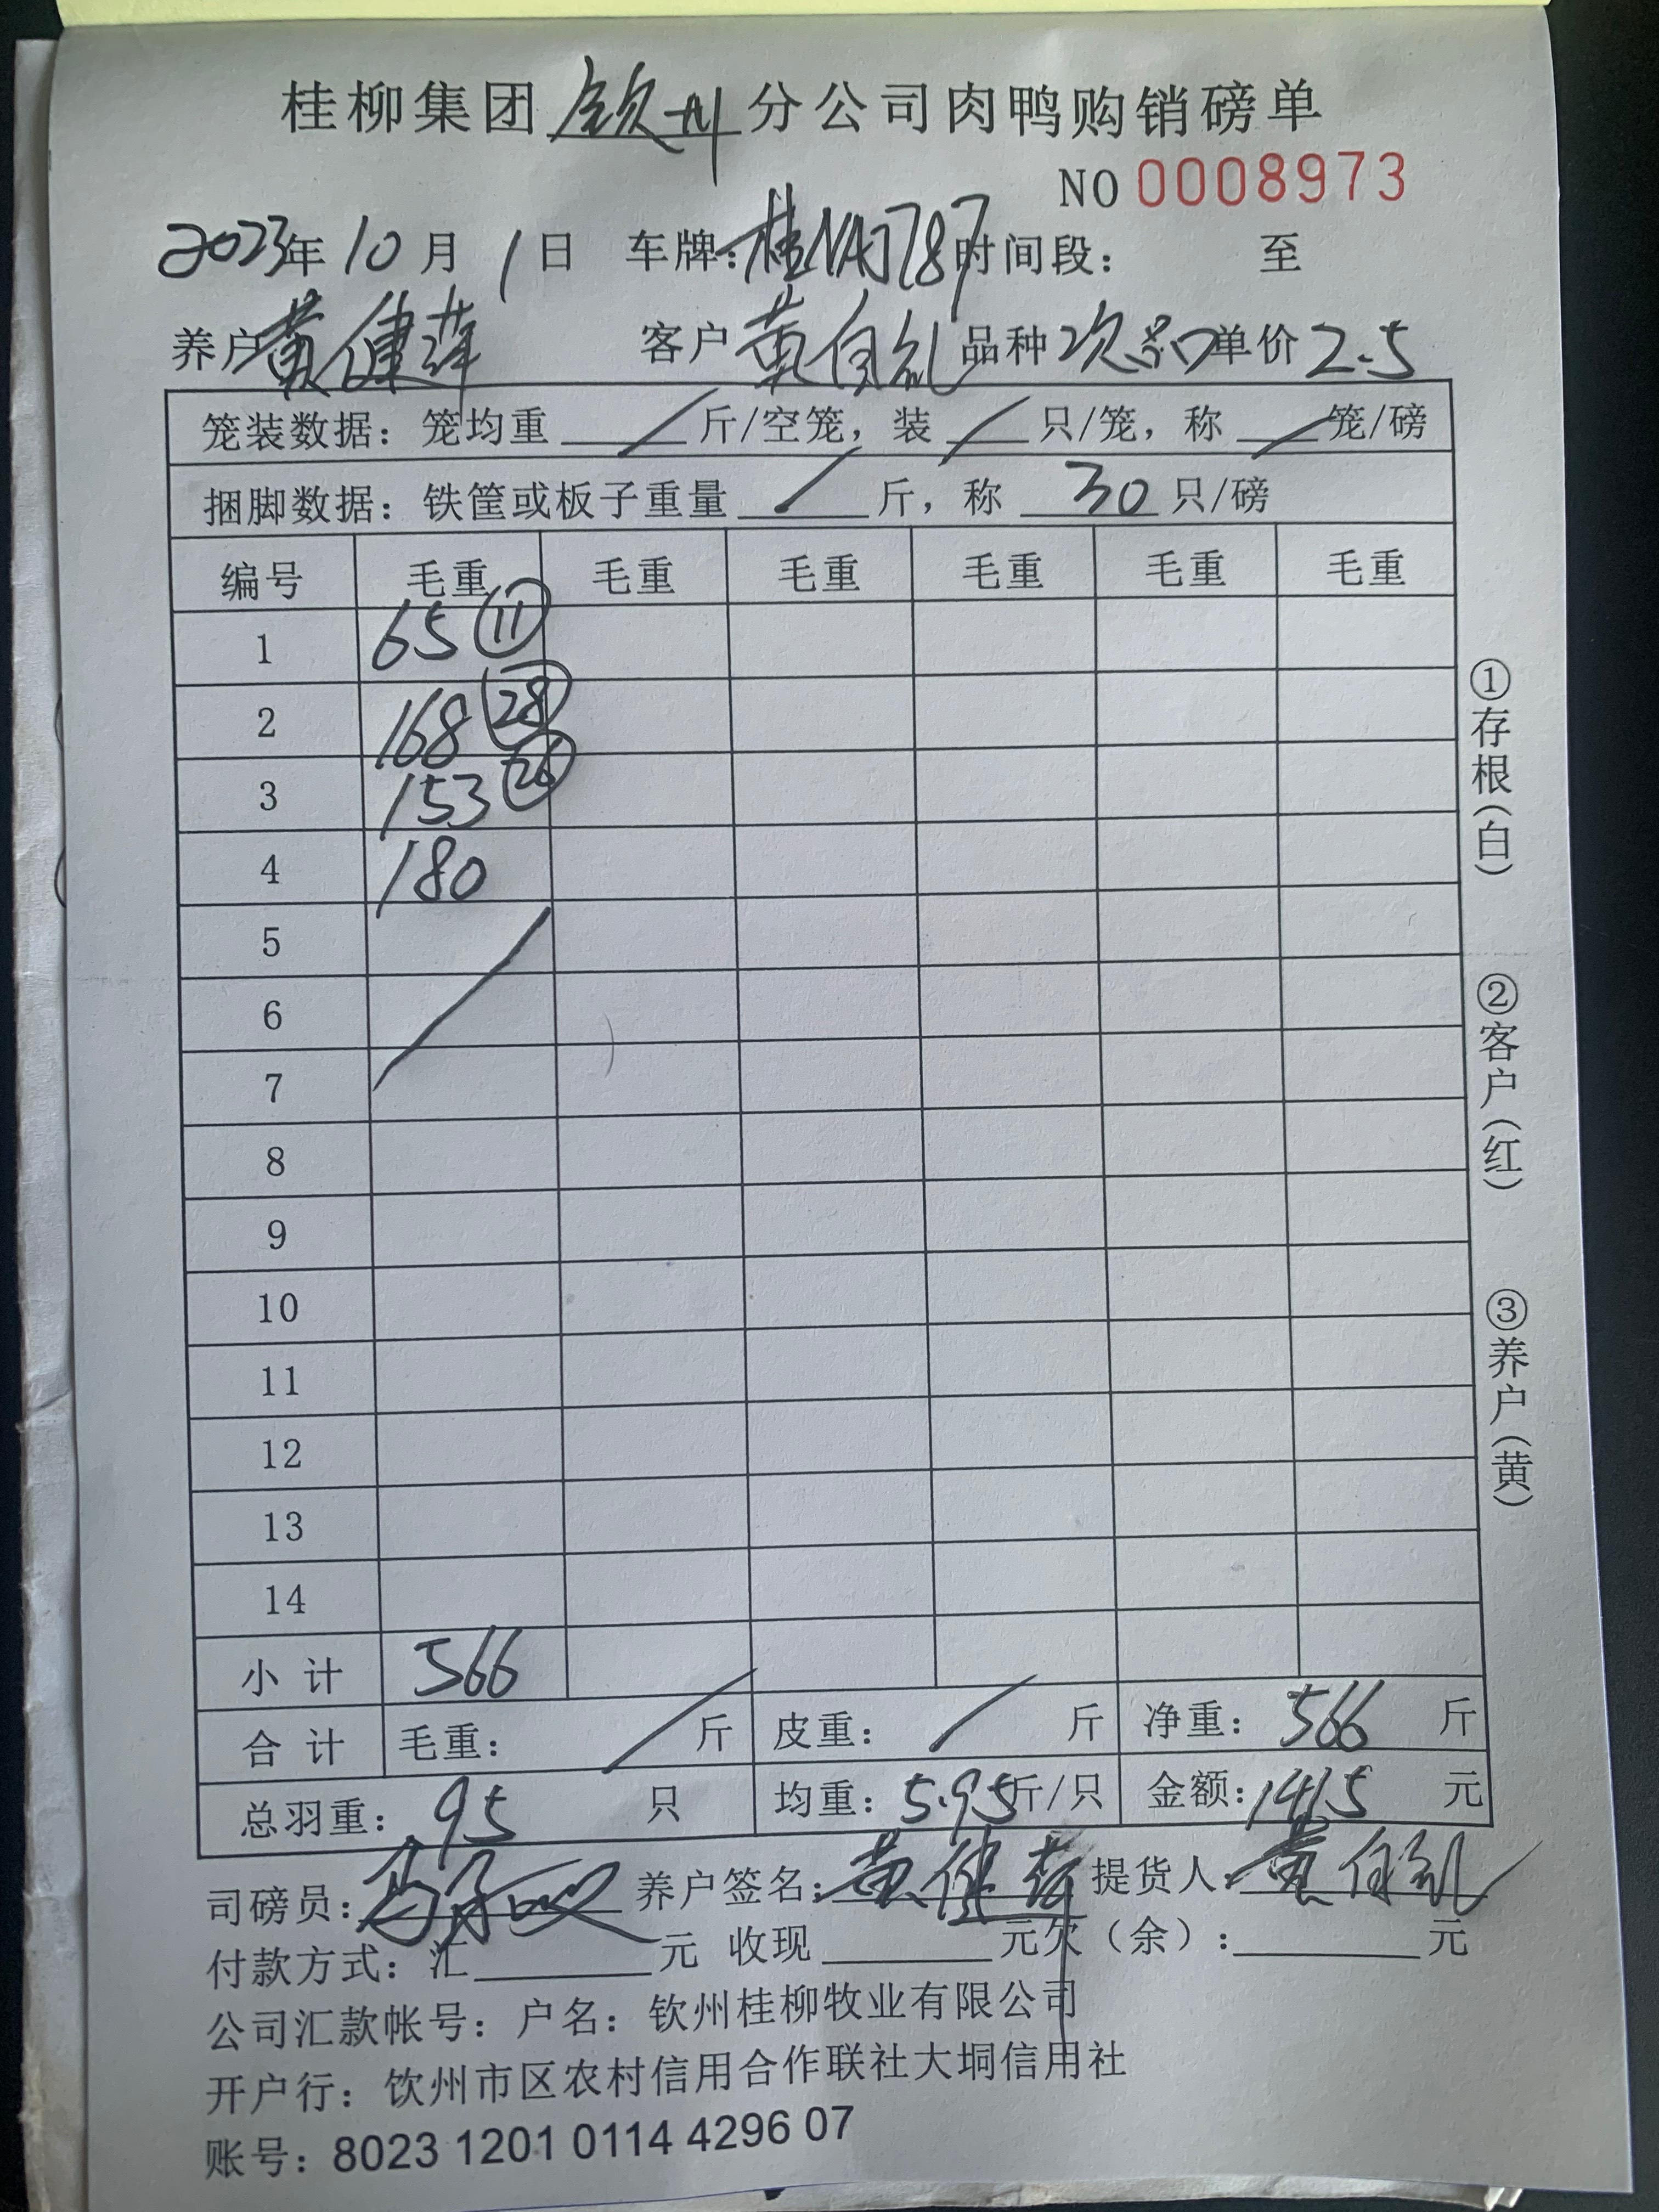 桂柳集团钦州分公司肉鸭购销磅单
NO 0008973
2023年10月1日 车牌:桂NAJ787时间段: 至
养户黄健萍 客户黄自礼品种次品单价2.5
笼装数据:笼均重 / 斤/空笼,装 / 只/笼,称 / 笼/磅
捆脚数据:铁筐或板子重量 / 斤,称 30 只/磅
编号 毛重 毛重 毛重 毛重 毛重 毛重
1 65 (11)
2 168 (28)
3 153 (26)
4 180
5
6
7
8
9
10
11
12
13
14
小计 566
合计 毛重: / 斤 皮重: / 斤 净重:566 斤
总羽重:95 只 均重:5.95斤/只 金额:1415 元
司磅员: 养户签名:黄健萍 提货人:黄自礼
付款方式:汇 元 收现 元欠(余): 元
公司汇款帐号:户名:钦州桂柳牧业有限公司
开户行:钦州市区农村信用合作联社大垌信用社
账号:8023 1201 0114 4296 07
①存根(白)
②客户(红)
③养户(黄)